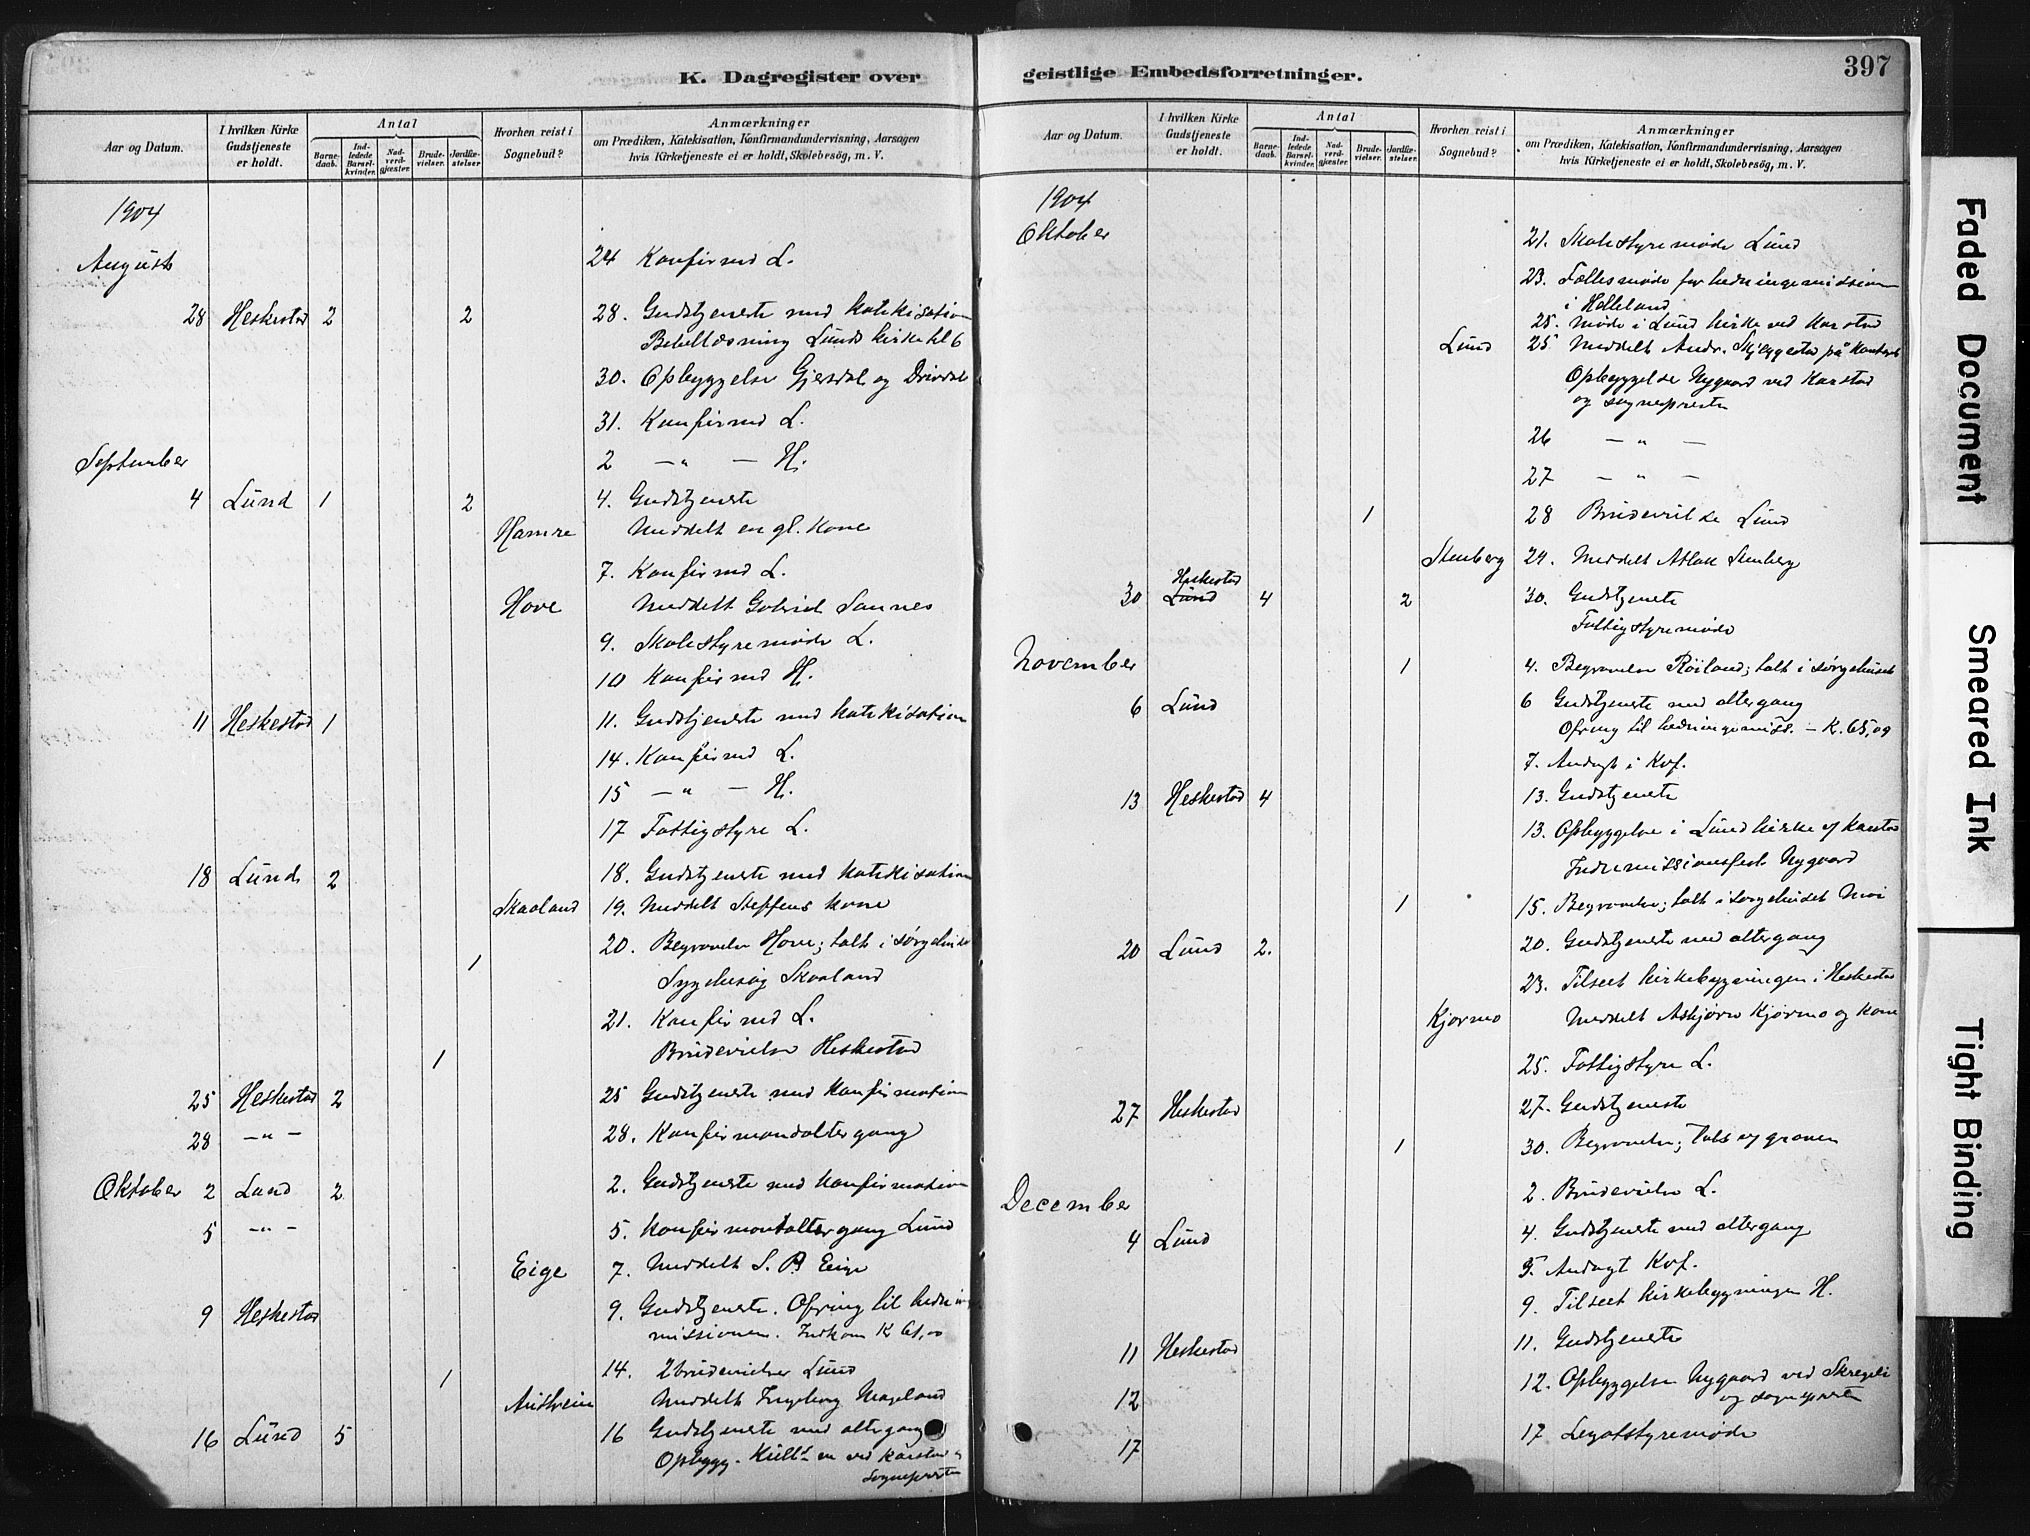 K. Dagregister over
Aar og Datum.
I hvilken Kirke Gudstjeneste er holdt.
Antal
Barne-daab.
Ind-ledede Barsel-kvinder.
Nad-verd-gjæster.
Brude-vielser.
Jordfæ-stelser.
Hvorhen reist i Sognebud?
Anmærkninger
om Prædiken, Katekisation, Konfirmandundervisning, Aarsagen
hvis Kirketjeneste ei er holdt, Skolebesøg, m. V.
1904
August 24 Konfirmd L.
28 Heskestad 2 2 28. Gudstjeneste med katekisation
Bibellæsning Lunds kirke kl 6
30. Opbyggelse Gjersdal og Drivdal
31. Konfirmd L.
September 2 — " — H.
4 Lund 1 2 4. Gudstjeneste
Hamre Meddelt en gl. Kone
7. Konfirmd L.
Hove Meddelt Gabriel Sannes
9. Skolestyremøde L.
10 Konfirmd H.
11 Heskestad 1 11. Gudstjeneste med katekisation
14. Konfirmd L.
15 — " — H.
17 Fattigstyre L.
18 Lund 2 18. Gudstjeneste med katekisation
Skaaland 19. Meddelt Steffens kone
1 20. Begravelse Hove; talt i sørgehuset
Sygebesøg Skaaland
21. Konfirmd L.
1 Brudevielse Heskestad
25 Heskestad 2 25 Gudstjeneste med konfirmation
28 — " — 28. Konfirmandaltergang
Oktober 2 Lund 2 2. Gudstjeneste med konfirmation
5 — " — 5. Konfirmantaltergang Lund
Eige 7. Meddelt S. B. Eige
9 Heskestad 9. Gudstjeneste. Ofring til hedninge
missionen. Indkom K 61,00
1 14. 2 brudevielser Lund
Austrheim Meddelt Ingeborg Mageland
16 Lund 5 16 Gudstjeneste med altergang
Opbygg. ved Karstad og
Sognepresten
geistlige Embedsforretninger.
397
Aar og Datum.
I hvilken Kirke Gudstjeneste er holdt.
Antal
Barne-daab.
Ind-ledede Barsel-kvinder.
Nad-verd-gjæster.
Brude-vielser.
Jordfæ-stelser.
Hvorhen reist i Sognebud?
Anmærkninger
om Prædiken, Katekisation, Konfirmandundervisning, Aarsagen
hvis Kirketjeneste ei er holdt, Skolebesøg, m. V.
1904
Oktober 21. Skolestyremøde Lund
23. Fællesmøde for hedningemissionen
i Helleland
25. møde i Lund kirke ved Karstad
Lund 25 Meddelt Andr. Skjeggestad på
Opbyggelse Nygaard ved Karstad
og sognepresten
26 — " —
27 — " —
1 28 Brudevielse Lund
Stenberg 29. Meddelt Atlak Stenberg
30 Heskestad Lund 4 2 30. Gudstjeneste
Fattigstyremøde
November 1 4. Begravelse Røiland; talt i sørgehuset
6 Lund 6 Gudstjeneste med altergang
Ofring til hedningemiss. — K. 65,09
7. Andagt i Kvf.
13 Heskestad 4 13. Gudstjeneste
13. Opbyggelse i Lund kirke af Karstad
Indremissionsfest Nygaard
1 15. Begravelse; talt i sørgehuset Moi
20 Lund 2. 20. Gudstjeneste med altergang
23. Tilseet kirkebygningen i Heskestad
Kjørmo Meddelt Asbjørn Kjørmo og kone
25. Fattigstyre L.
27 Heskestad 27. Gudstjeneste
1 30. Begravelse; Talt ved graven
December 2. Brudevielse L.
4 Lund 4. Gudstjeneste med altergang
5. Andagt Kvf.
9. Tilseet kirkebygningen H.
11 Heskestad 11. Gudstjeneste
12 12. Opbyggelse Nygaard ved Skregeli
og sognepresten
17 17 Legatstyremøde
Faded Document
Smeared Ink
Tight Binding